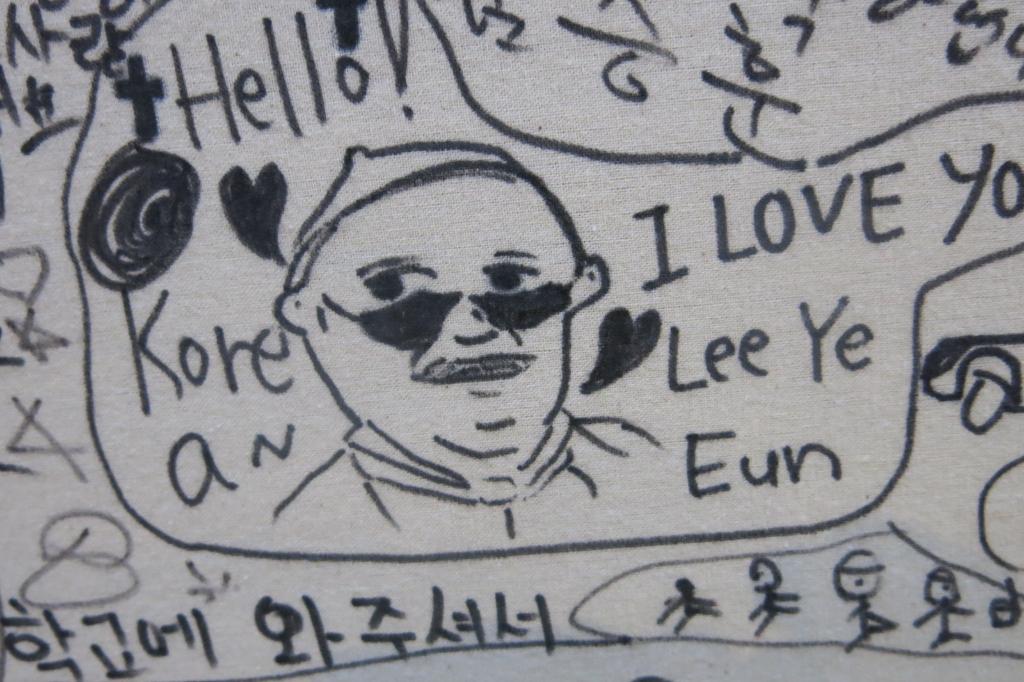 사랑
Hello!
I LOVE YO
Kore
Lee Ye
a~
Eun
학교에 와주셔서